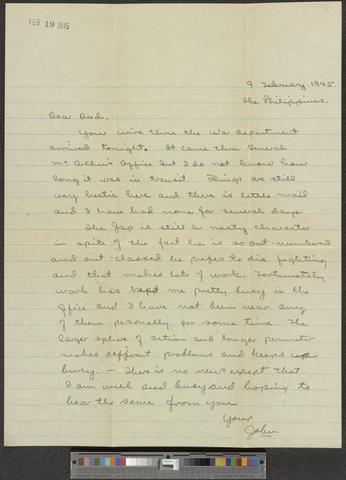 FEB 19 1945
9 February 1945
The Philippines.
Dear Dad.
Your wire thru the War department
arrived tonight. It came thru General
McArthur's office but I do not know how
long it was in transit. Things are still
very hectic here and there is little mail
and I have had none for several days.
The Jap is still a nasty character
in spite of the fact he is so out-numbered
and out-classed he prefers to die fighting
and that makes lots of work. Fortunately
work has kept me pretty busy in the
office and I have not been near any
of them personally for some time. The
larger sphere of action and longer perimeter
makes different problems and keeps us
busy. — There is no news except that
I am well and busy and hoping to
hear the same from you
Your
John